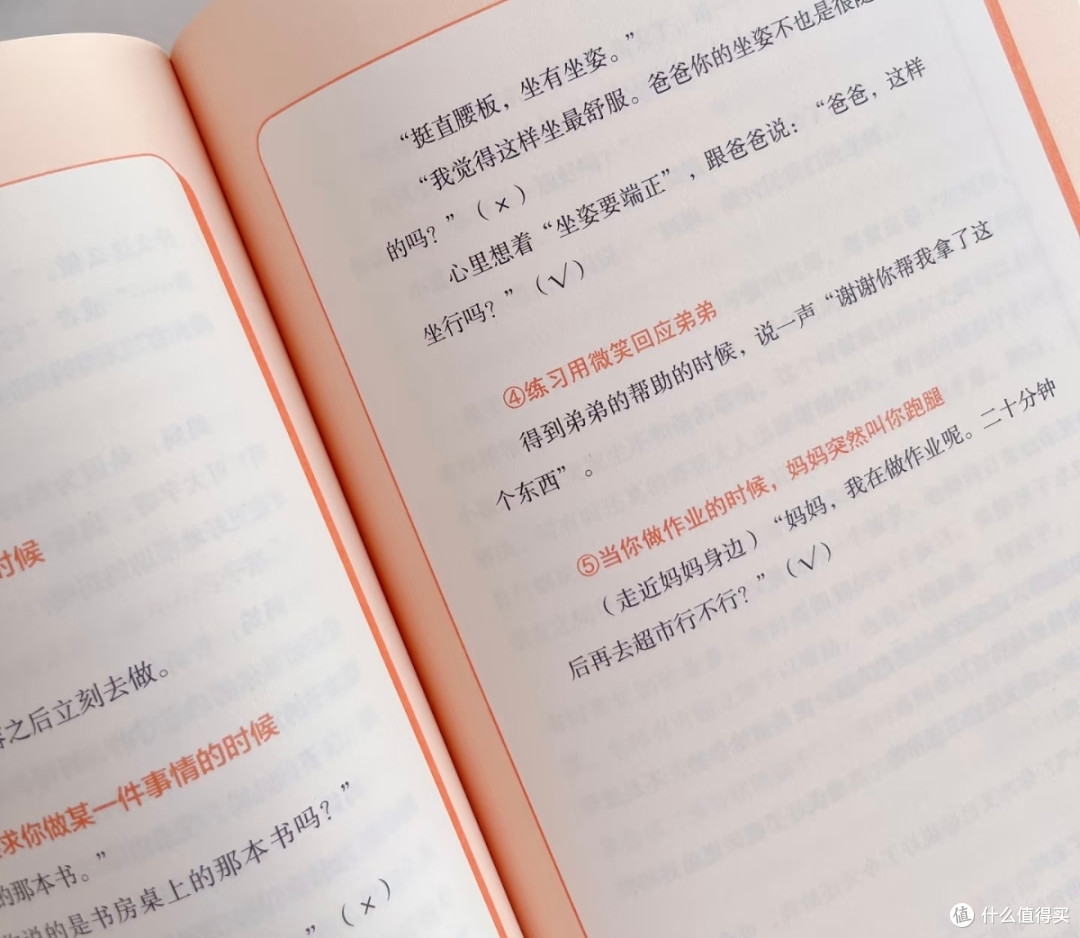 时候
之后立刻去做。
求你做某一件事情的时候
的那本书。”
说的是书房桌上的那本书吗？”
”（×）
“挺直腰板，坐有坐姿。”
“我觉得这样坐最舒服。爸爸你的坐姿不也是很随
的吗？”（×）
心里想着“坐姿要端正”，跟爸爸说：“爸爸，这样
坐行吗？”（√）
④练习用微笑回应弟弟
得到弟弟的帮助的时候，说一声“谢谢你帮我拿了这
个东西”。
⑤当你做作业的时候，妈妈突然叫你跑腿
（走近妈妈身边）“妈妈，我在做作业呢。二十分钟
后再去超市行不行？”（√）
值 什么值得买